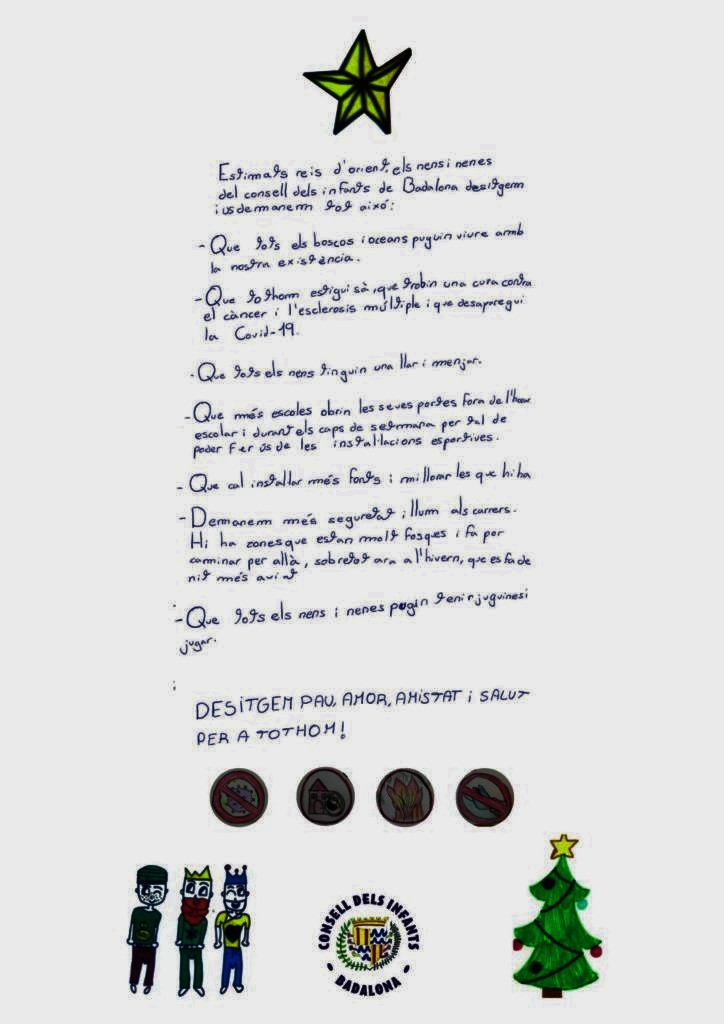 Estimats reis d'orient, els nens i nenes
del consell dels infants de Badalona desitgem
i us demanem tot aixó:
- Que tots els boscos i oceans puguin viure amb
la nostra existència.
- Que tothom estigui sà, que trobin una cura contra
el càncer i l'esclerosis múltiple i que desaparegui
la Covid-19.
- Que tots els nens tinguin una llar i menjar.
- Que més escoles obrin les seves portes fora de l'hora
escolar i durant els caps de setmana per tal de
poder fer ús de les instal·lacions esportives.
- Que cal instal·lar més fonts i millorar les que hi ha
- Demanem més seguretat i llum als carrers.
Hi ha zones que estan molt fosques i fa por
caminar per allà, sobretot ara a l'hivern, que es fa de
nit més aviat
- Que tots els nens i nenes pugin tenir juguines i
jugar.
DESITGEM PAU, AMOR, AMISTAT i SALUT
PER A TOTHOM!
CONSELL DELS INFANTS
- BADALONA -